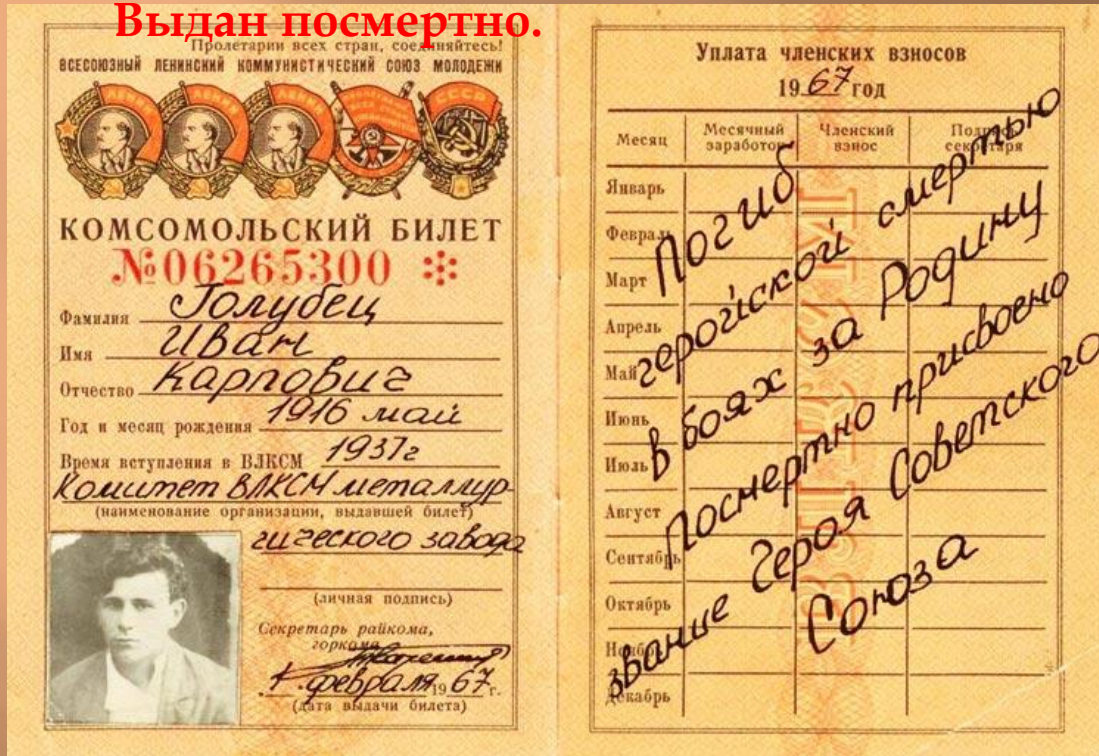 Выдан посмертно.
Пролетарии всех стран, соединяйтесь!
ВСЕСОЮЗНЫЙ ЛЕНИНСКИЙ КОММУНИСТИЧЕСКИЙ СОЮЗ МОЛОДЕЖИ
ЛЕНИН ЛЕНИН ЛЕНИН СССР
КОМСОМОЛЬСКИЙ БИЛЕТ
№06265300
Фамилия Голубец
Имя Иван
Отчество Карпович
Год и месяц рождения 1916 май
Время вступления в ВЛКСМ 1937г
Комитет ВЛКСМ металлур-
(наименование организации, выдавшей билет)
гического завода
(личная подпись)
Секретарь райкома,
горкома
1 февраля 1967 г.
(дата выдачи билета)
Уплата членских взносов
1967 год
Месяц Месячный заработок Членский взнос Подпись секретаря
Январь
Февраль
Март
Апрель
Май
Июнь
Июль
Август
Сентябрь
Октябрь
Ноябрь
Декабрь
Погиб
геройской смертью
в боях за Родину
Посмертно присвоено
звание Героя Советского
Союза